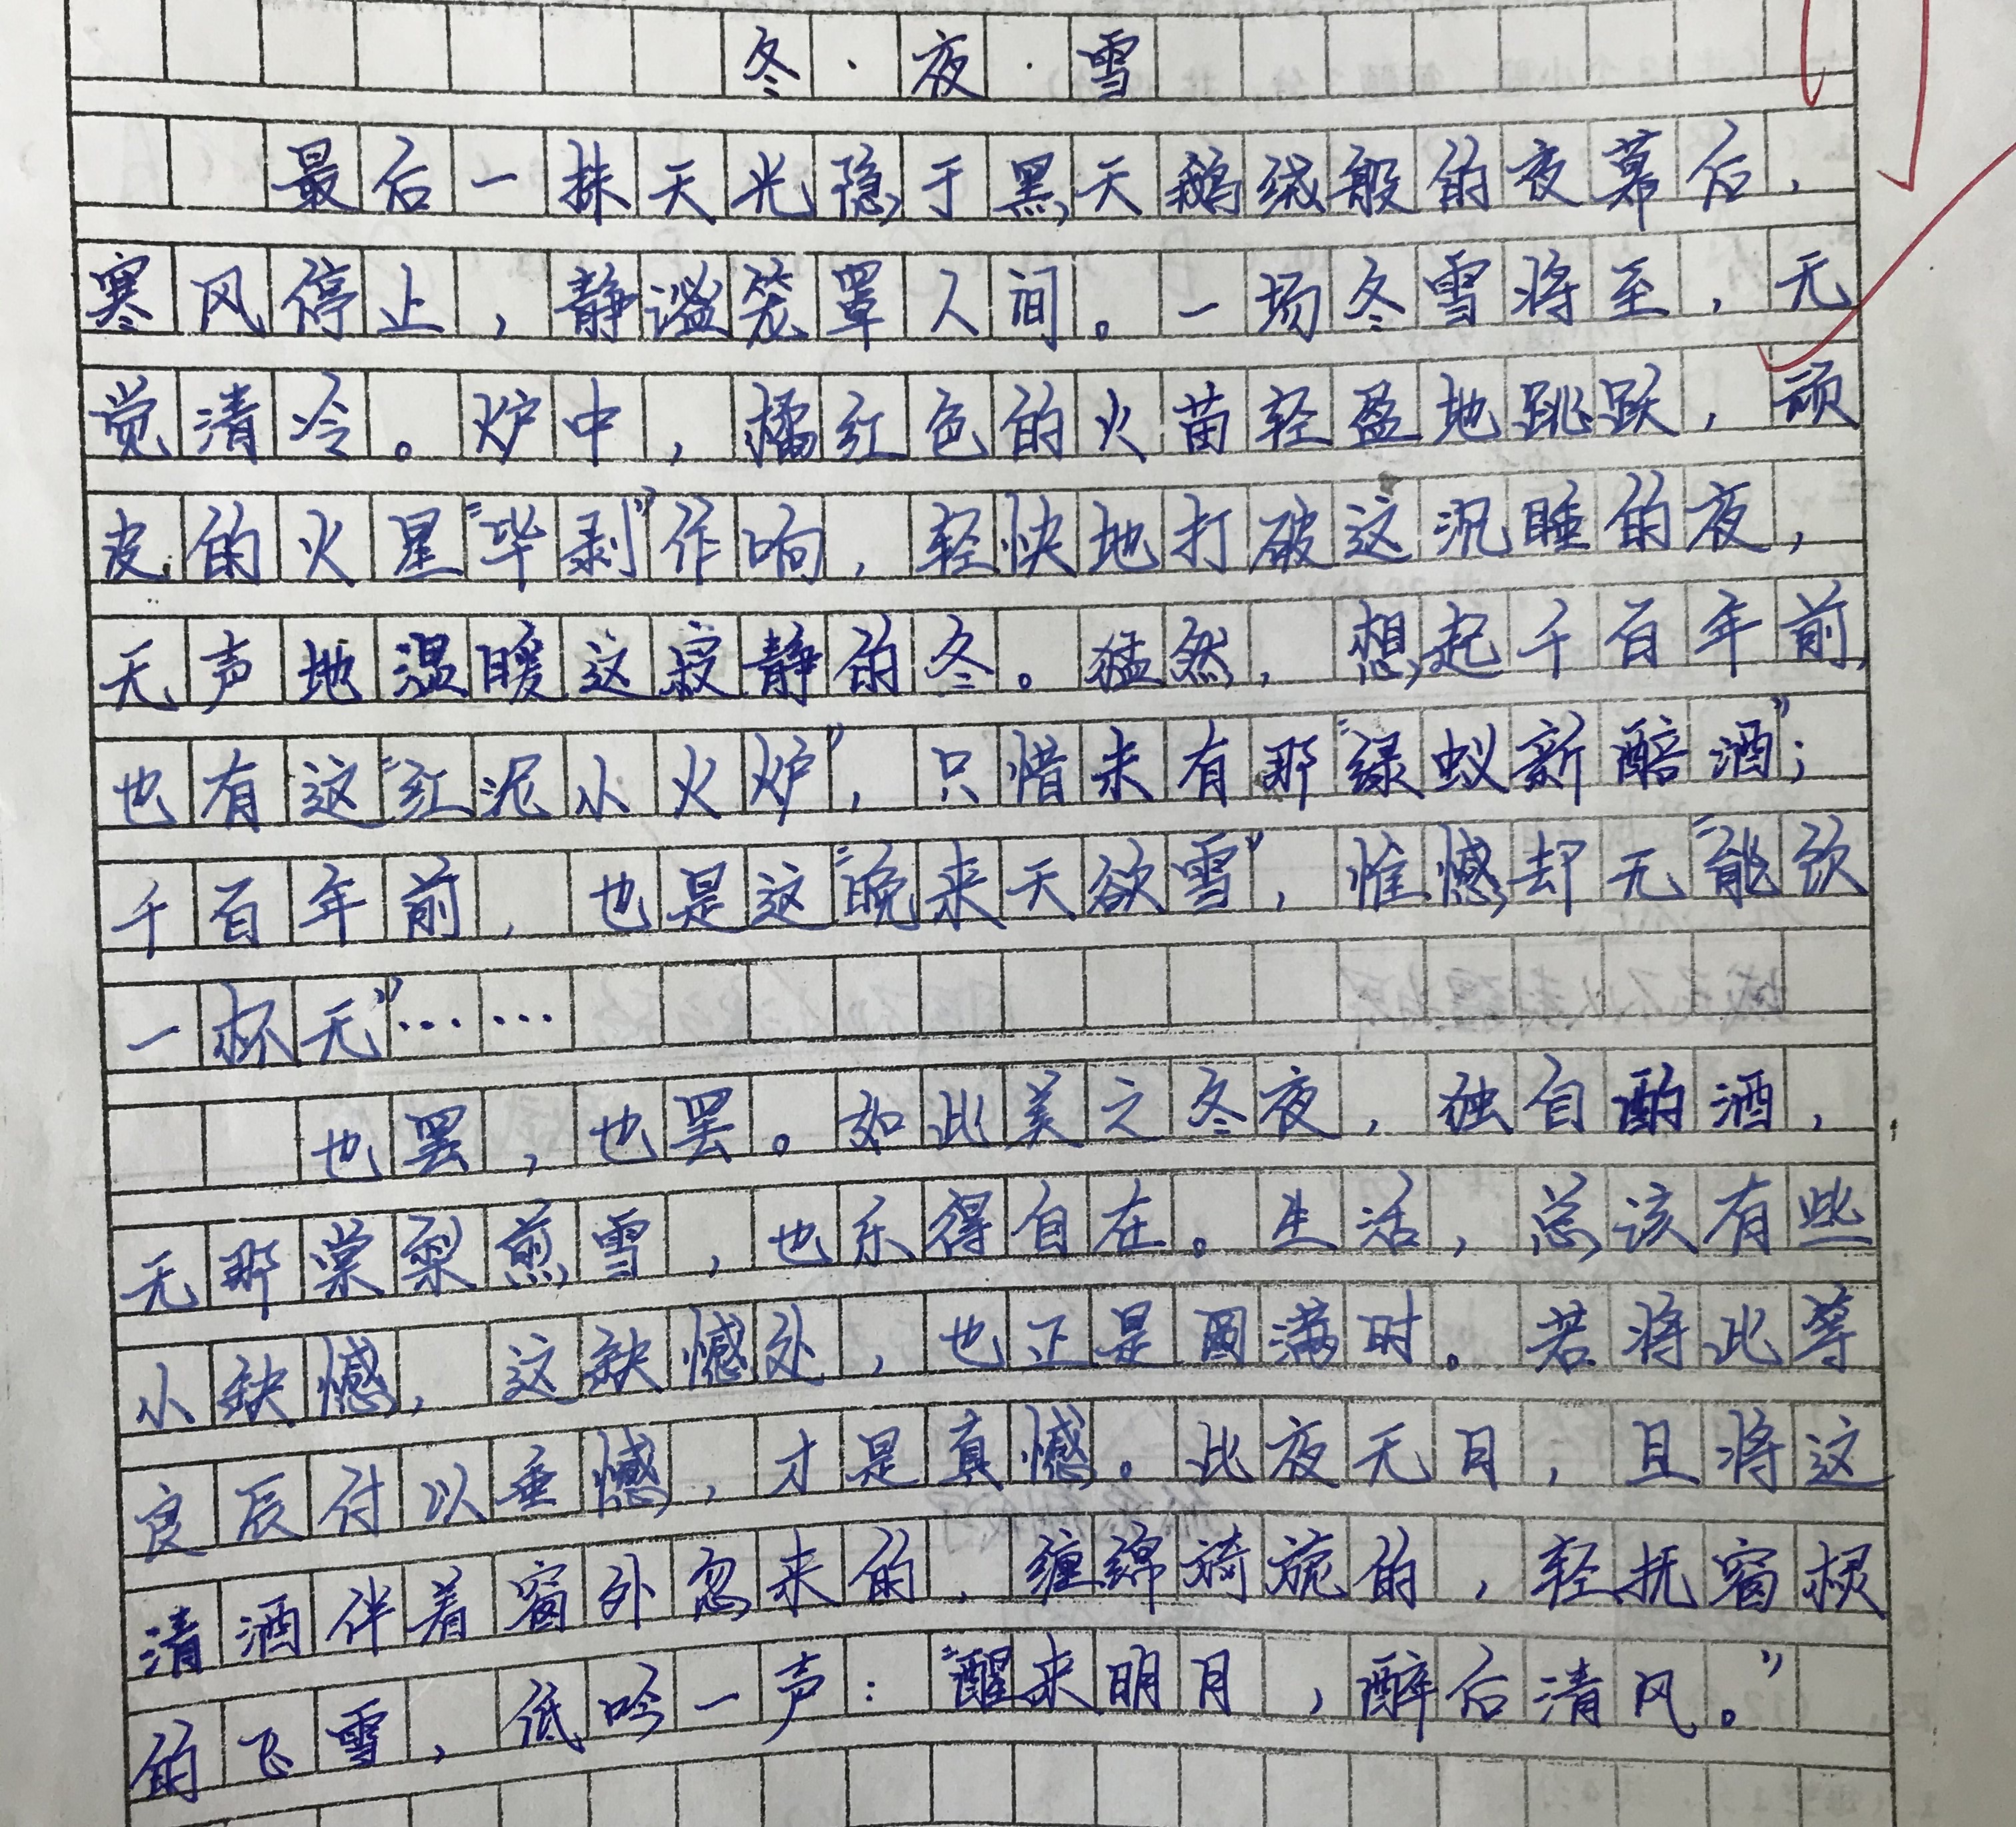 冬·夜·雪
最后一抹天光隐于黑天鹅绒般的夜幕后，
寒风停止，静谧笼罩人间。一场冬雪将至，无
觉清冷。炉中，橘红色的火苗轻盈地跳跃，顽
皮的火星“毕剥”作响，轻快地打破这沉睡的夜，
无声地温暖这寂静的冬。猛然，想起千百年前，
也有这“红泥小火炉”，只惜未有那“绿蚁新醅酒”；
千百年前，也是这“晚来天欲雪”，惟憾却无“能饮
一杯无”……
也罢，也罢。如此美之冬夜，独自酌酒，
无那棠梨煎雪，也乐得自在。生活，总该有些
小缺憾，这缺憾处，也正是圆满时。若将此等
良辰付以垂憾，才是真憾。此夜无月，且将这
清酒伴着窗外忽来的，缠绵旖旎的，轻抚窗棂
的飞雪，低吟一声：“醒来明月，醉后清风。”